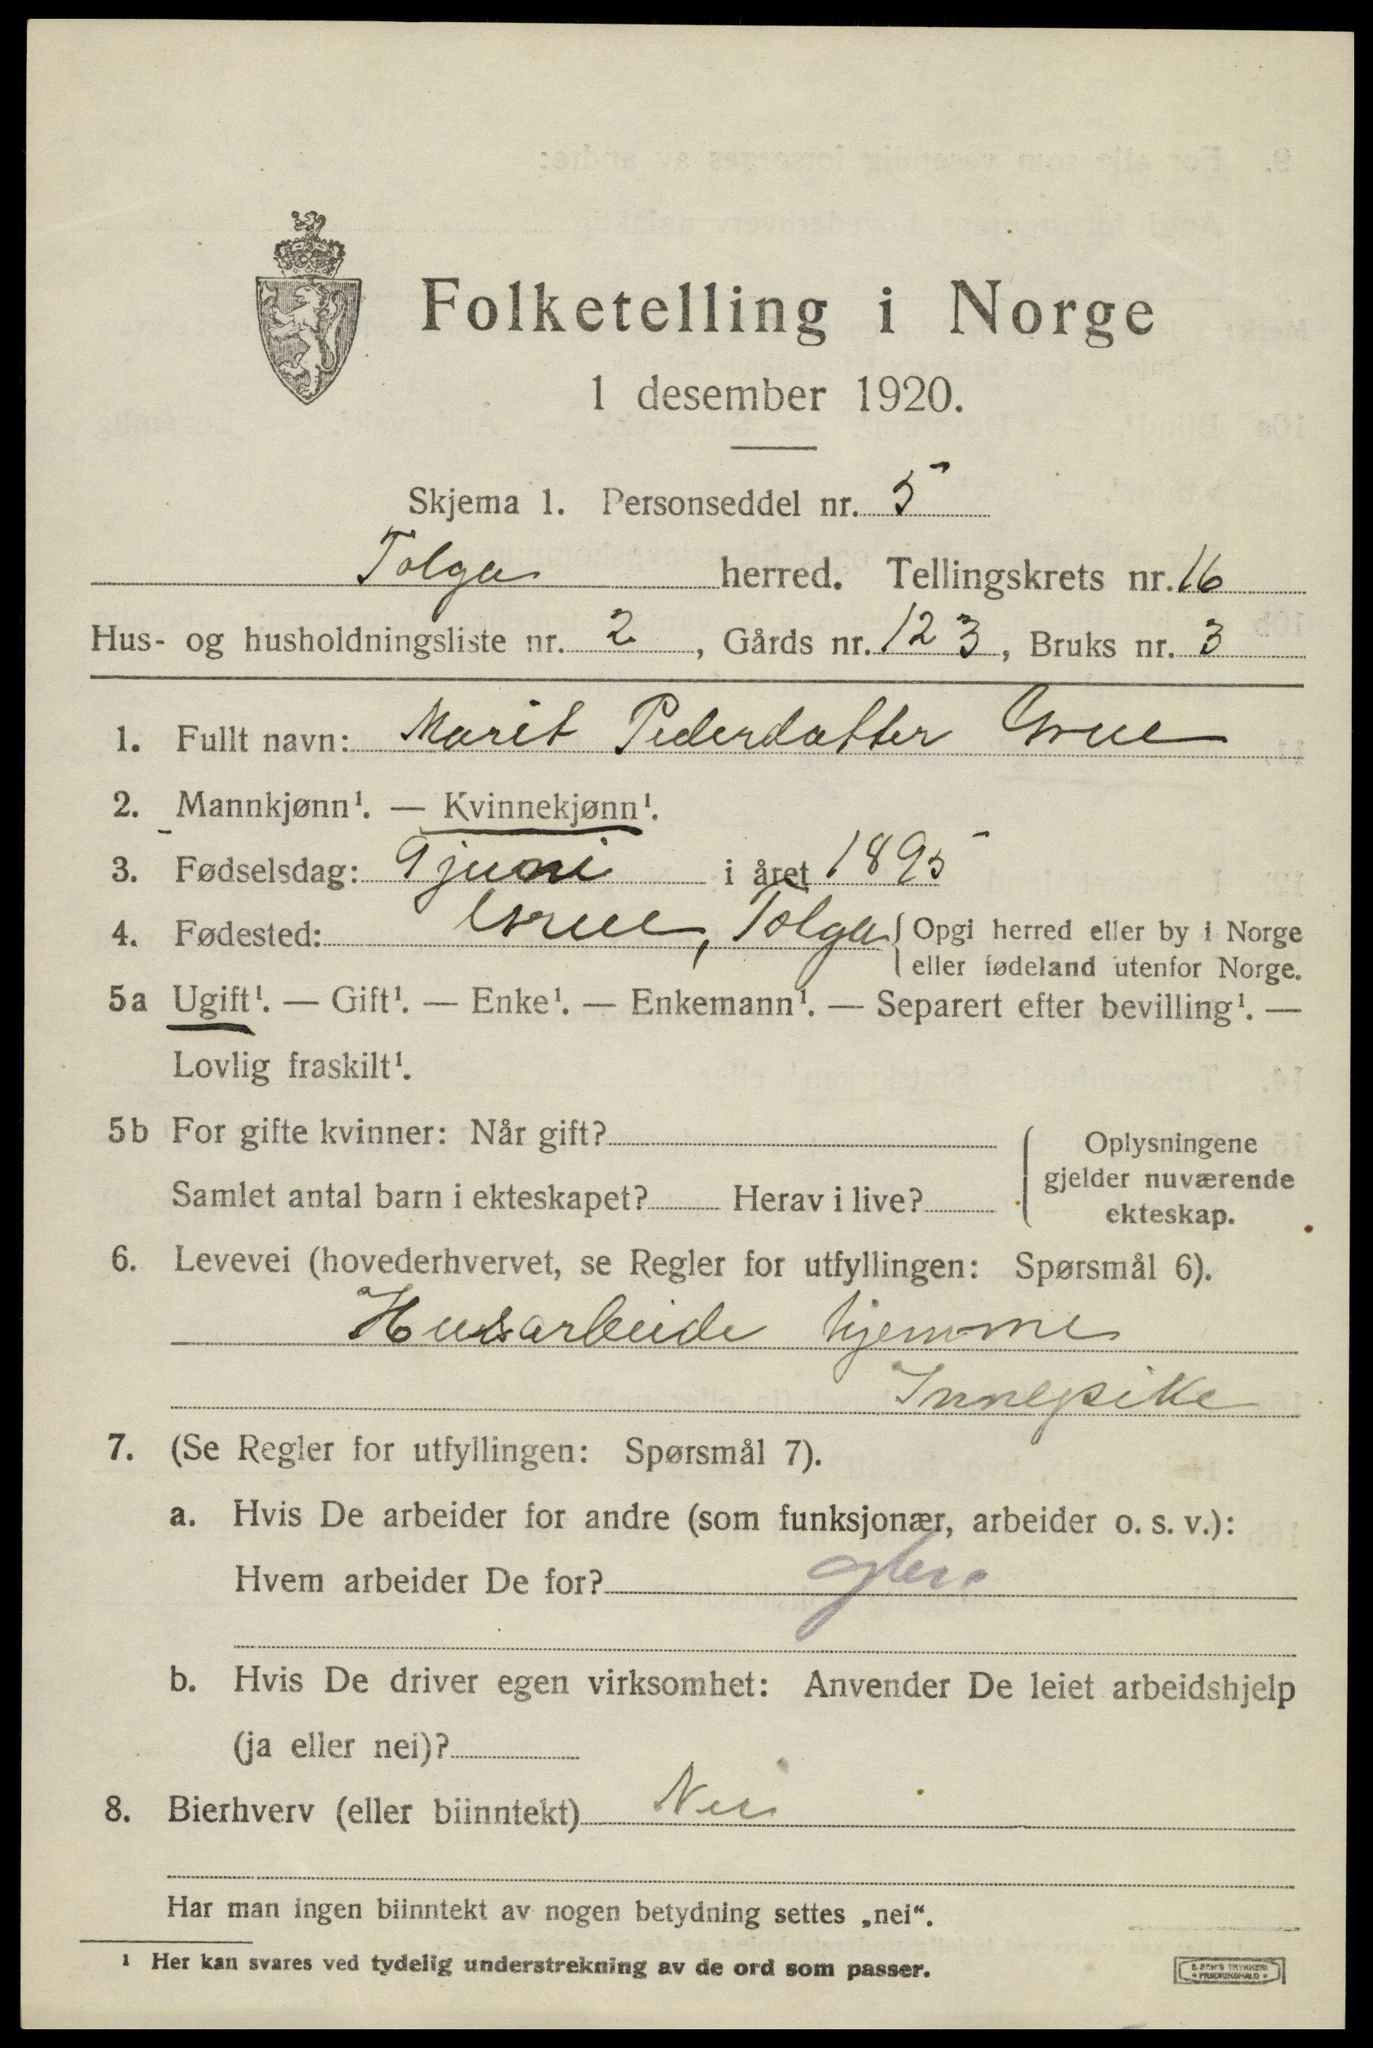 Folketelling i Norge
1 desember 1920.
Skjema 1. Personseddel nr. 5
Tolga herred. Tellingskrets nr. 16
Hus- og husholdningsliste nr. 2, Gårds nr. 123, Bruks nr. 3
1. Fullt navn: Marit Pedersdatter Grue
2. Mannkjønn¹. — Kvinnekjønn¹.
3. Fødselsdag: 9 juni i året 1895
4. Fødested: Grue, Tolga { Opgi herred eller by i Norge
eller fødeland utenfor Norge.
5a Ugift¹. — Gift¹. — Enke¹. — Enkemann¹. — Separert efter bevilling¹. —
Lovlig fraskilt¹.
5b For gifte kvinner: Når gift?
Samlet antal barn i ekteskapet? Herav i live?
{ Oplysningene
gjelder nuværende
ekteskap.
6. Levevei (hovederhvervet, se Regler for utfyllingen: Spørsmål 6).
Husarbeide hjemme
Innepike
7. (Se Regler for utfyllingen: Spørsmål 7).
a. Hvis De arbeider for andre (som funksjonær, arbeider o. s. v.):
Hvem arbeider De for?
b. Hvis De driver egen virksomhet: Anvender De leiet arbeidshjelp
(ja eller nei)?
8. Bierhverv (eller biinntekt) Nei
Har man ingen biinntekt av nogen betydning settes „nei“.
¹ Her kan svares ved tydelig understrekning av de ord som passer.